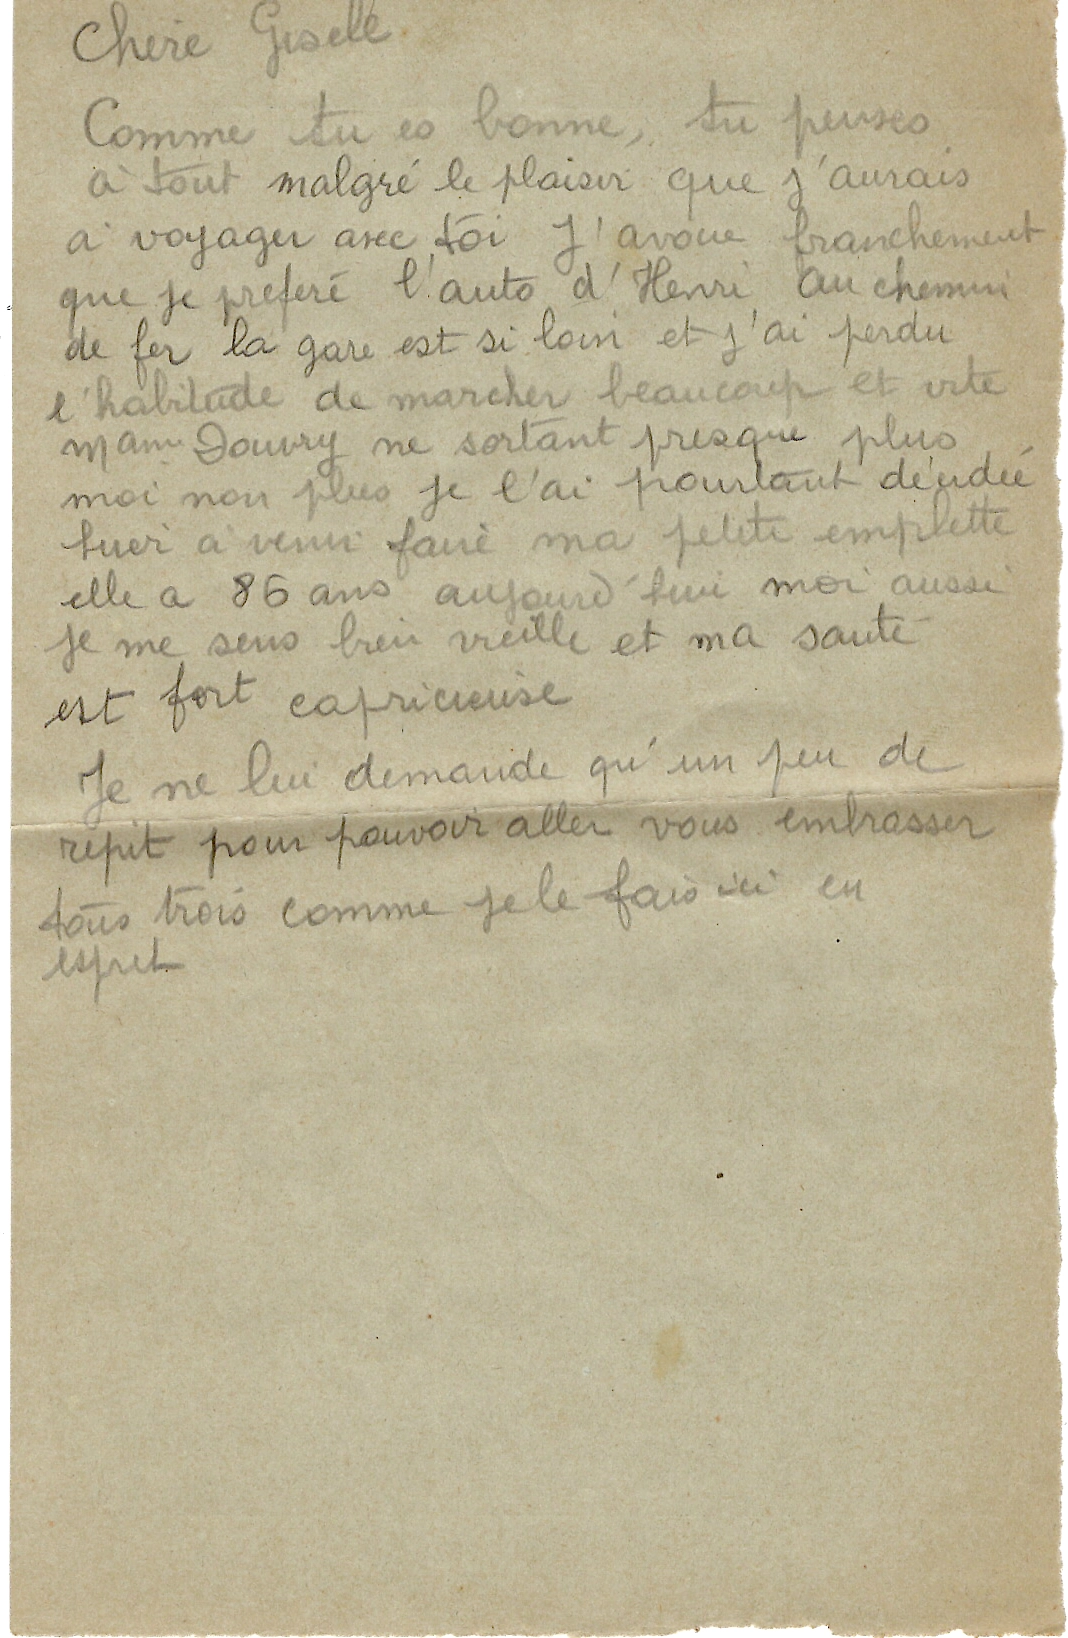 Chère Giselle
Comme tu es bonne, tu penses
à tout malgré le plaisir que j'aurais
a voyager avec toi J'avoue franchement
que je preferé l'auto d'Henri au chemin
de fer la gare est si loin et j'ai perdu
l'habitude de marcher beaucoup et vite
Mam Douvry ne sortant presque plus
moi non plus je l'ai pourtant décidée
hier à venir faire ma petite emplette
elle a 86 ans aujourd'hui moi aussi
je me sens bien vieille et ma santé
est fort capricieuse
Je ne lui demande qu'un peu de
repit pour pouvoir aller vous embrasser
tous trois comme je le fais ici en
esprit